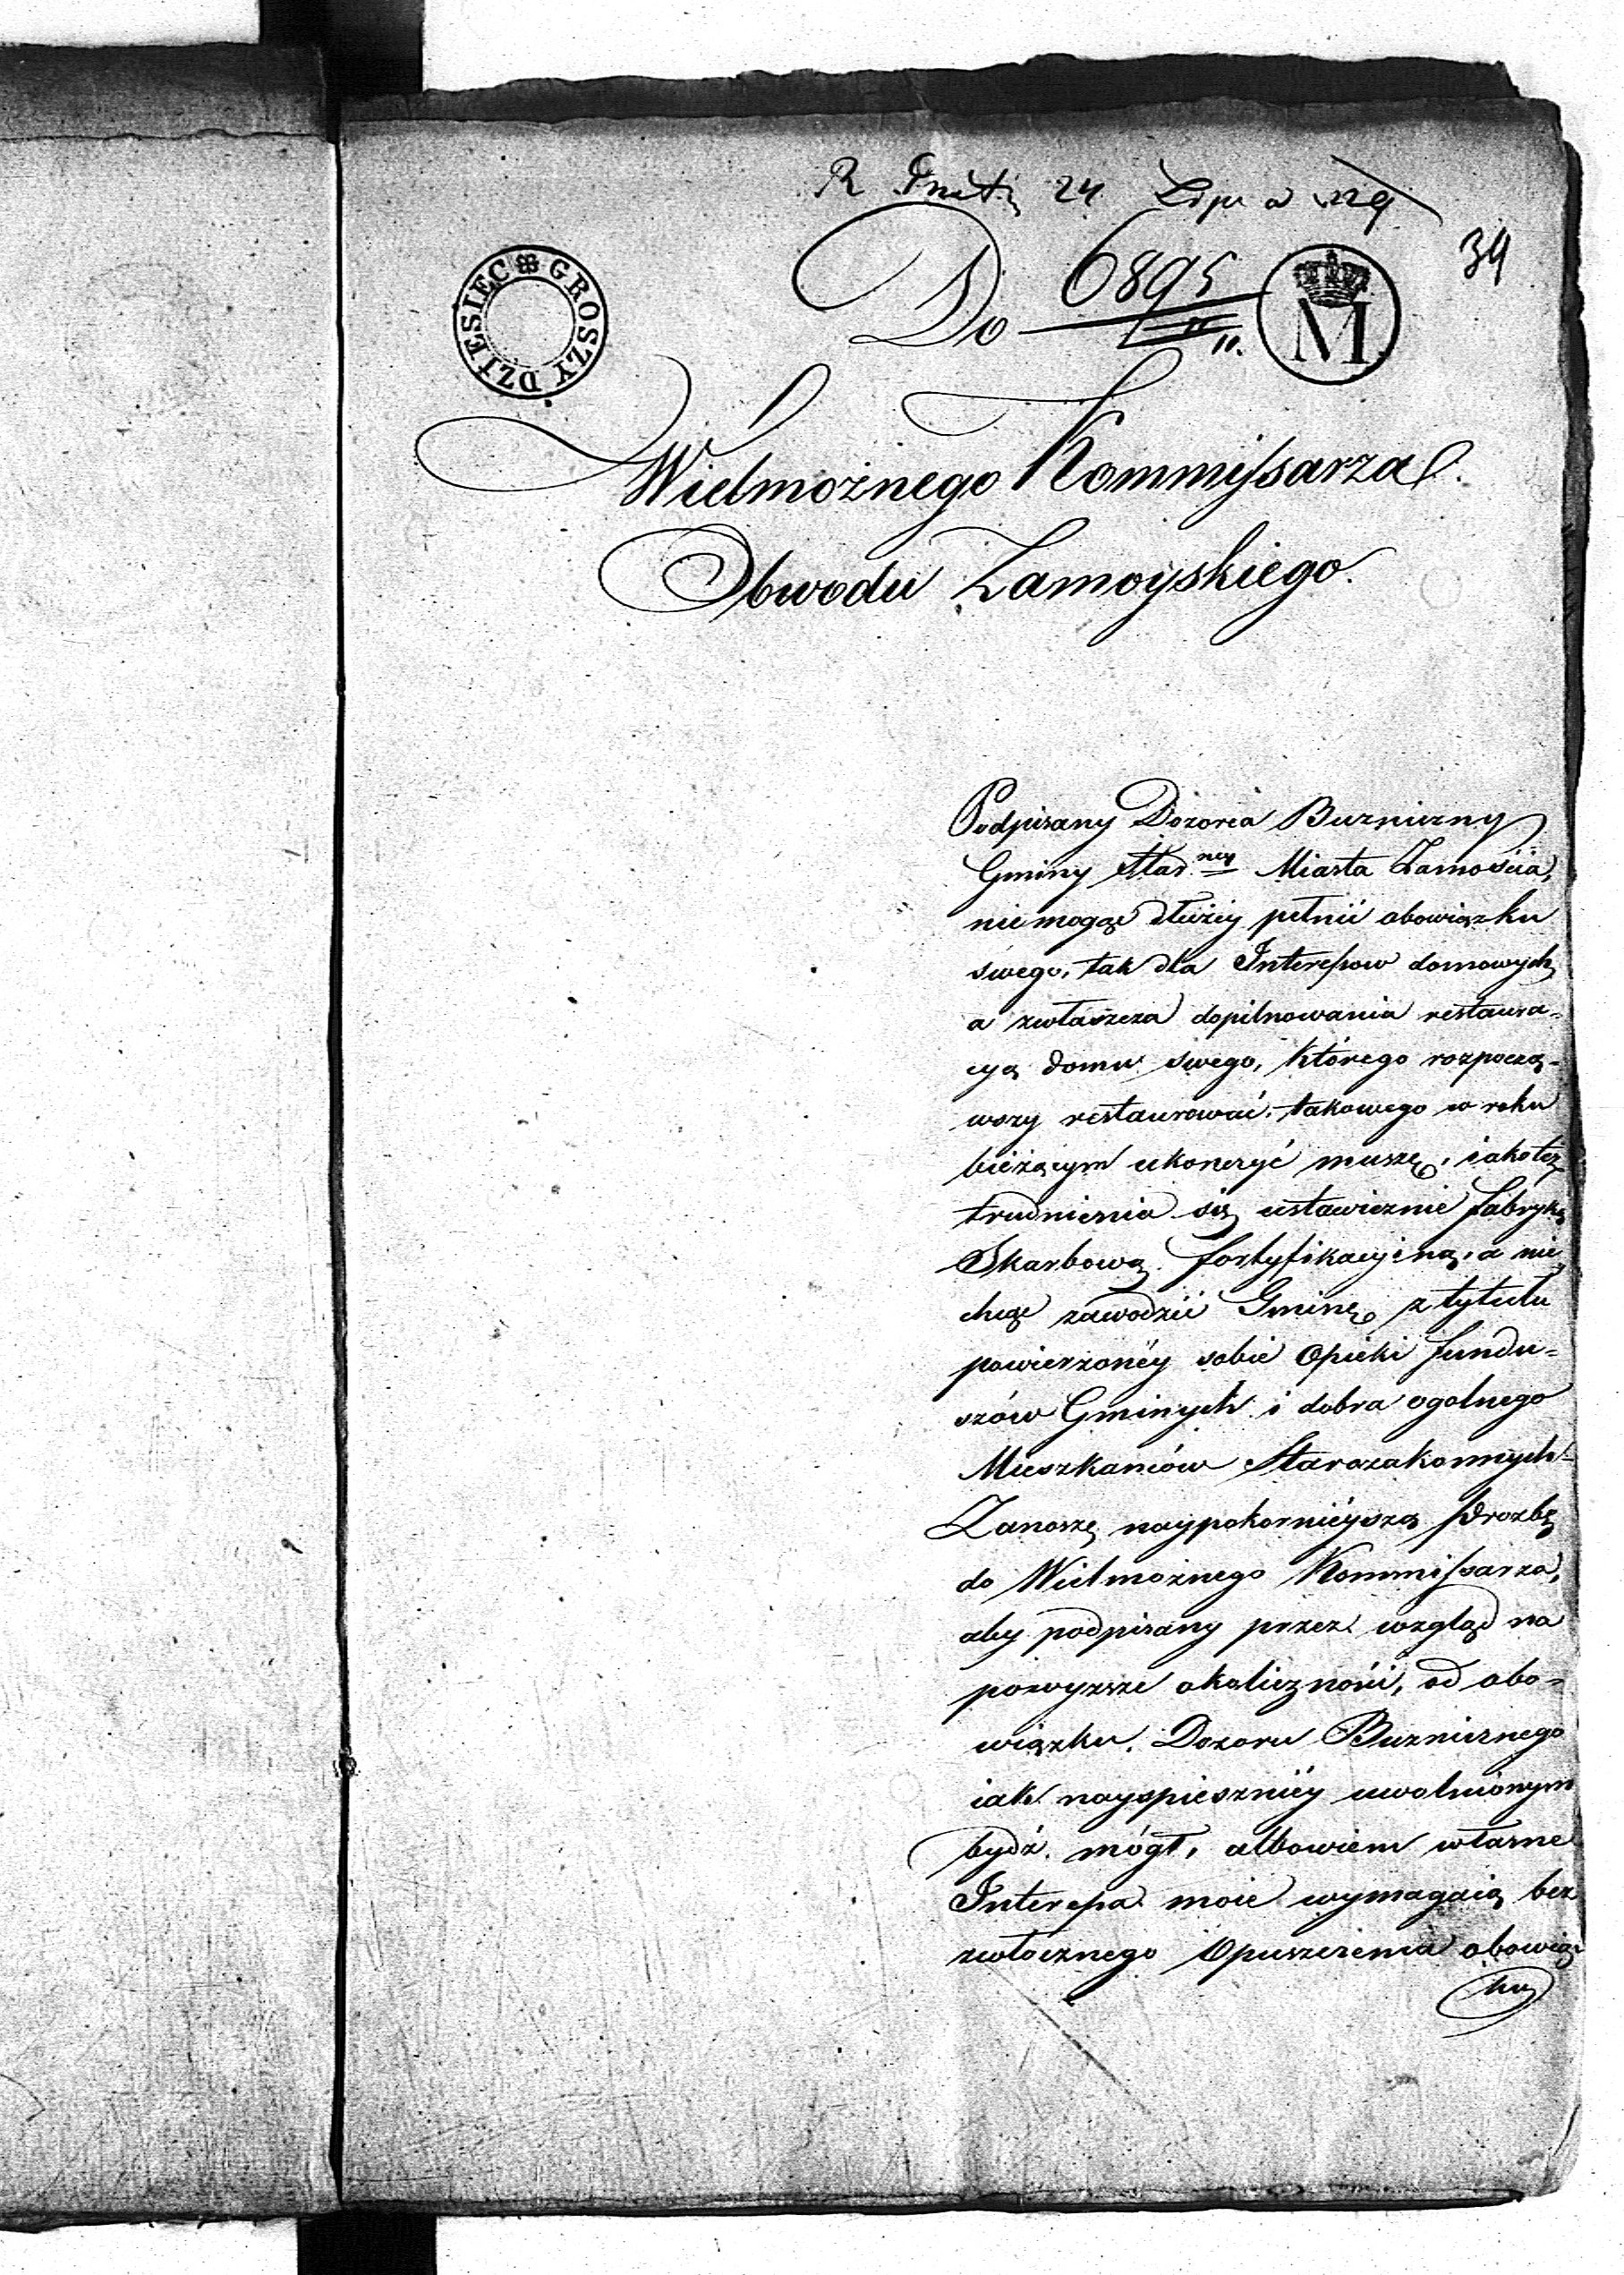 24 Lipca
34
6895
DZIESIEC GROSZY
M
Do
Wielmożnego Kommissarza
Obwodu Zamoyskiego.
Podpisany Dozorca Buzniczny
Gminy Star.ney Miasta Zamościa,
niemogąc dłużey pełnić obowiązku
swego, tak dla Interessow domowych
a zwłaszcza dopilnowania restaura=
cyą domu swego, którego rozpocząw=
wszy restaurować, takowego w roku
bieżącym ukonczyć muszę, iakoteż
trudnienia się ustawicznie fabryką
Skarbową fortyfikacyiną, a nie
chcąc zawodzić Gminę z tytułu
powierzonéy sobie Opieki fundu=
szów Gminych i dobra ogolnego
Mieszkańców Starozakonnych=
Zanoszę naypokornieyszą Prozbę
do Wielmożnego Kommissarza,
aby podpisany przez wzgląd na
powyzsze okoliczności, od obo=
wiązku Dozoru Buznicznego
iak nayspieszniéy uwolnionym
bydź mógł, albowiem własne
Interessa moie wymagaią bez
zwłocznego Opuszczenia obowią
ku